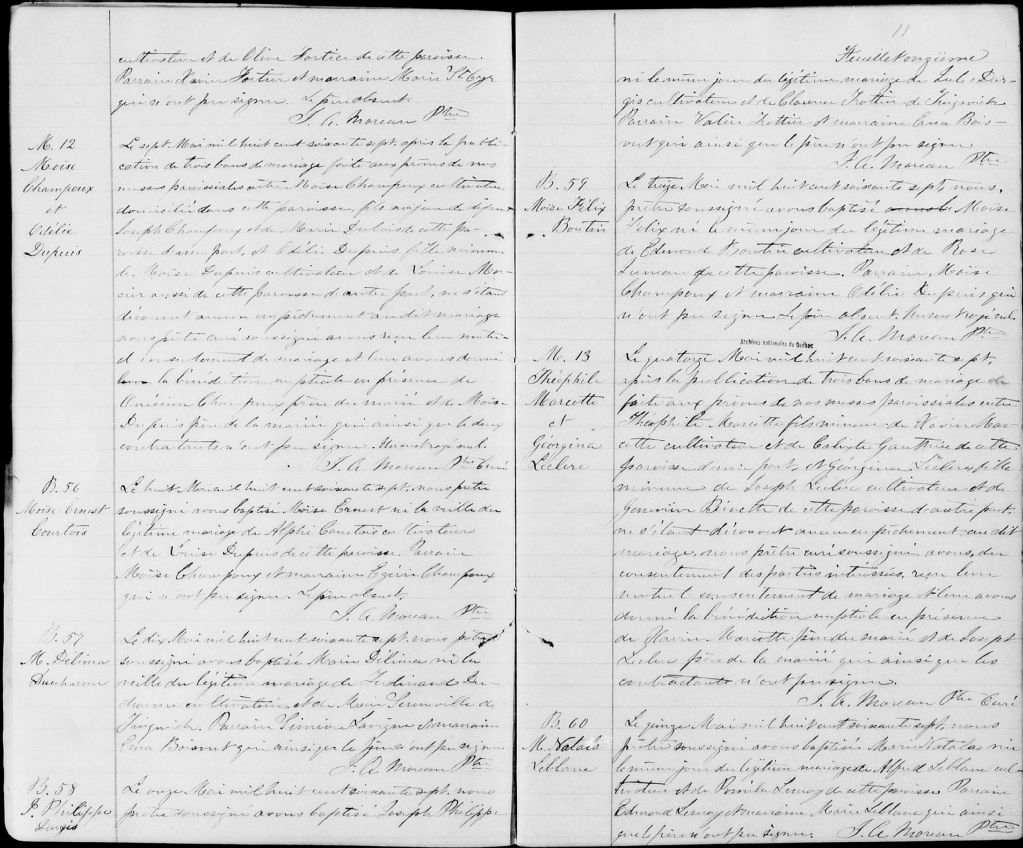 cultivateur et de Olive Fortier de cette paroisse.
Parrain Xavier Fortier et marraine Marie St Cyr
qui n'ont pu signer. Le père absent.
J. A. Moreau Ptre
M. 12
Moïse
Champoux
et
Odélie
Dupuis
Le sept Mai mil huit cent soixante sept, après la publi-
cation de trois bans de mariage faite aux prônes de nos
messes paroissiales entre Moïse Champoux cultivateur
domicilié dans cette paroisse, fils majeur de
Joseph Champoux et de Marie Dubois de cette pa-
roisse d'une part, et Odélie Dupuis fille mineure
de Moïse Dupuis cultivateur et de Louise
aussi de cette paroisse d'autre part, ne s'étant
découvert aucun empêchement au dit mariage
nous prêtre curé soussigné avons reçu leur mutu-
el consentement de mariage et leur avons donné
la bénédiction nuptiale en présence de
Onésime Champoux frère du marié et de Moïse
Dupuis père de la mariée qui ainsi que les deux
contractants n'ont pu signer.
J. A. Moreau Ptre Curé
B. 56
Moïse Ernest
Courtois
Le huit Mai mil huit cent soixante sept, nous prêtre
soussigné avons baptisé Moïse Ernest né la veille du
légitime mariage de Alphé Courtois cultivateur
et de Louise Dupuis de cette paroisse. Parrain
Moïse Champoux et marraine Champoux
qui n'ont pu signer. Le père absent.
J. A. Moreau Ptre
B. 57
M. Délima
Ducharme
Le dix Mai mil huit cent soixante sept, nous prêtre
soussigné avons baptisé Marie Délima née la
veille du légitime mariage de Ferdinand Du-
charme cultivateur et de Marie de
Parrain Lavigne et marraine
Boisvert qui ainsi que le père n'ont pu signer
J. A. Moreau Ptre
B. 58
J. Philippe
Le onze Mai mil huit cent soixante sept, nous
prêtre soussigné avons baptisé Joseph Philippe
11
Feuillet onzième
né le même jour du légitime mariage de
cultivateur et de Trottier de
Parrain Trottier et marraine Bois-
vert qui ainsi que le père n'ont pu signer
J. A. Moreau Ptre
B. 59
Moïse Félix
Boutin
Le treize Mai mil huit cent soixante sept, nous,
prêtre soussigné avons baptisé Moïse
Félix né le même jour du légitime mariage
de Edmond Boutin cultivateur et de Rose
de cette paroisse. Parrain, Moïse
Champoux et marraine Odélie Dupuis qui
n'ont pu signer. Le père absent.
J. A. Moreau Ptre
Archives nationales du Québec
M. 13
Théophile
Marcotte
et
Géorgina
Leclerc
Le quatorze Mai mil huit cent soixante sept,
après la publication de trois bans de mariage
faite aux prônes de nos messes paroissiales entre
Théophile Marcotte fils mineur de Xavier Mar-
cotte cultivateur et de Gauthier de cette
paroisse d'une part, et Géorgina Leclerc fille
mineure de Joseph Leclerc cultivateur et de
Geneviève de cette paroisse d'autre part,
ne s'étant découvert aucun empêchement au dit
mariage, nous prêtre curé soussigné avons, du
consentement des parties intéressées, reçu leur
mutuel consentement de mariage et leur avons
donné la bénédiction nuptiale en présence
de Marcotte père du marié et de Joseph
Leclerc père de la mariée qui ainsi que les
contractants n'ont pu signer.
J. A. Moreau Ptre Curé
B. 60
M. Natalie
Leblanc
Le quinze Mai mil huit cent soixante sept, nous
prêtre soussigné avons baptisé Marie née
le même jour du légitime mariage de Alfred Leblanc cul-
tivateur et de de cette paroisse Parrain
Edmond et marraine Marie Leblanc qui ainsi
que le père n'ont pu signer. J. A. Moreau Ptre